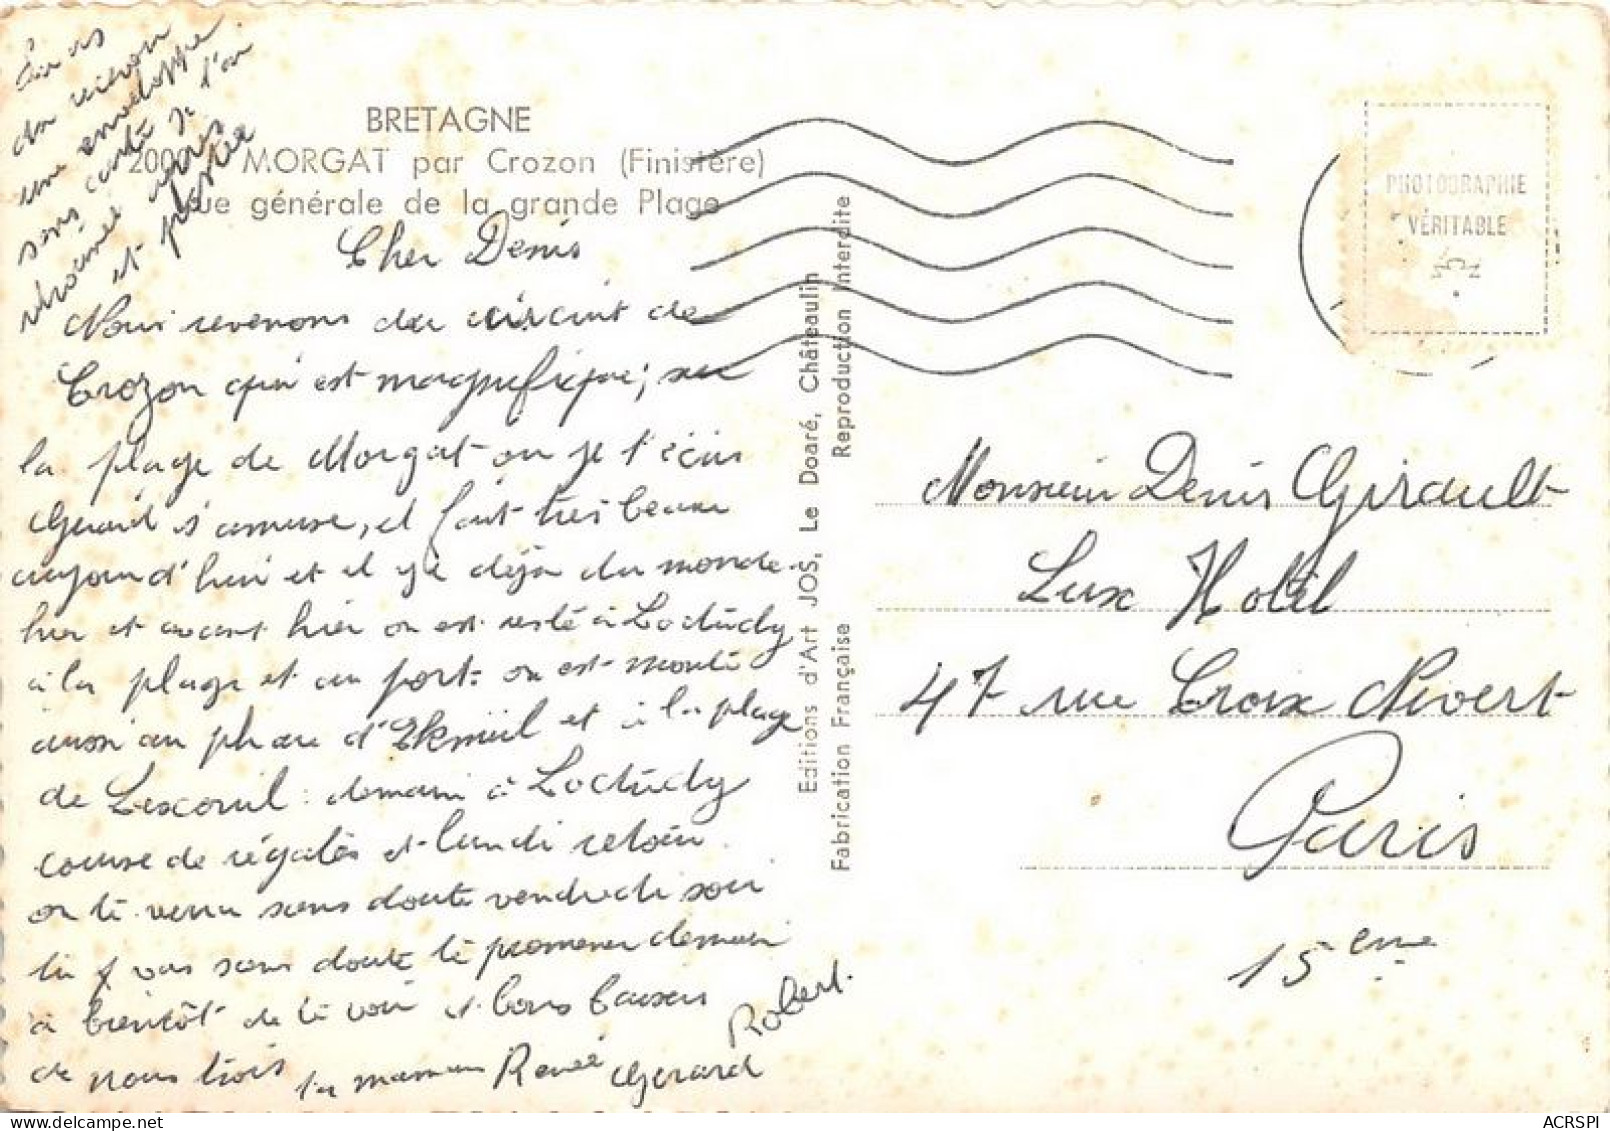 Tu as
dû recevoir
une enveloppe
sans carte je l'ai
retrouvée après
et postée
BRETAGNE
MORGAT par Crozon (Finistère)
Vue générale de la grande Plage
Cher Denis
Nous revenons du circuit de
Crozon qui est magnifique; sur
la plage de Morgat ou je t'écris
Gérard s'amuse, il fait très beau
aujourd'hui et il y a déjà du monde.
hier et avant hier on est resté à Loctudy
à la plage et au port: on est monté
aussi au phare d'Ekmül et à la plage
de Lesconil : demain à Loctudy
course de régates et lundi retour.
on te verra sans doute vendredi soir
tu y vas sans doute te promener demain
à bientôt de te voir et bons baisers
de nous trois ta maman Renée Gérard
Robert.
Editions d'Art JOS, Le Doaré, Châteaulin
Fabrication Française Reproduction Interdite
PHOTOGRAPHIE
VÉRITABLE
Monsieur Denis Girault
Lux Hotel
47 rue Croix Nivert
Paris
15 eme
ACRSPI